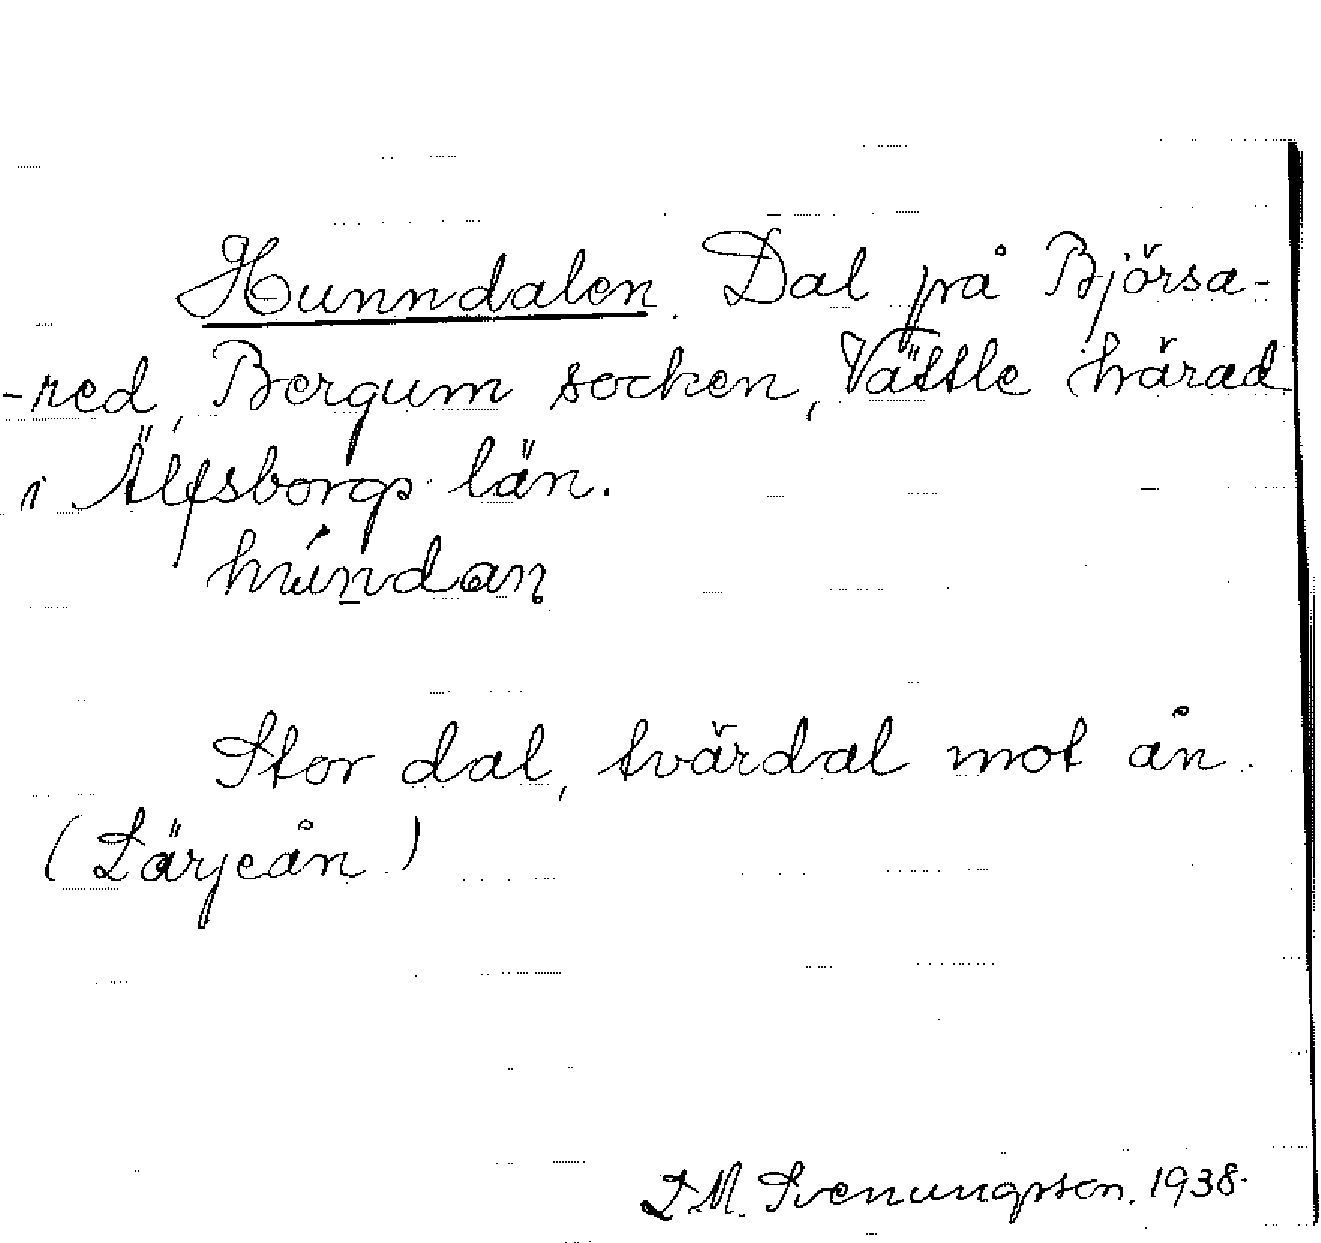 Hunndalen. Dal på Björsa-
-red, Bergum socken, Vättle härad
i Älfsborgs län.
Stor dal, tvärdal mot ån.
(Lärjeån)
L.M. Svenungsson. 1938.